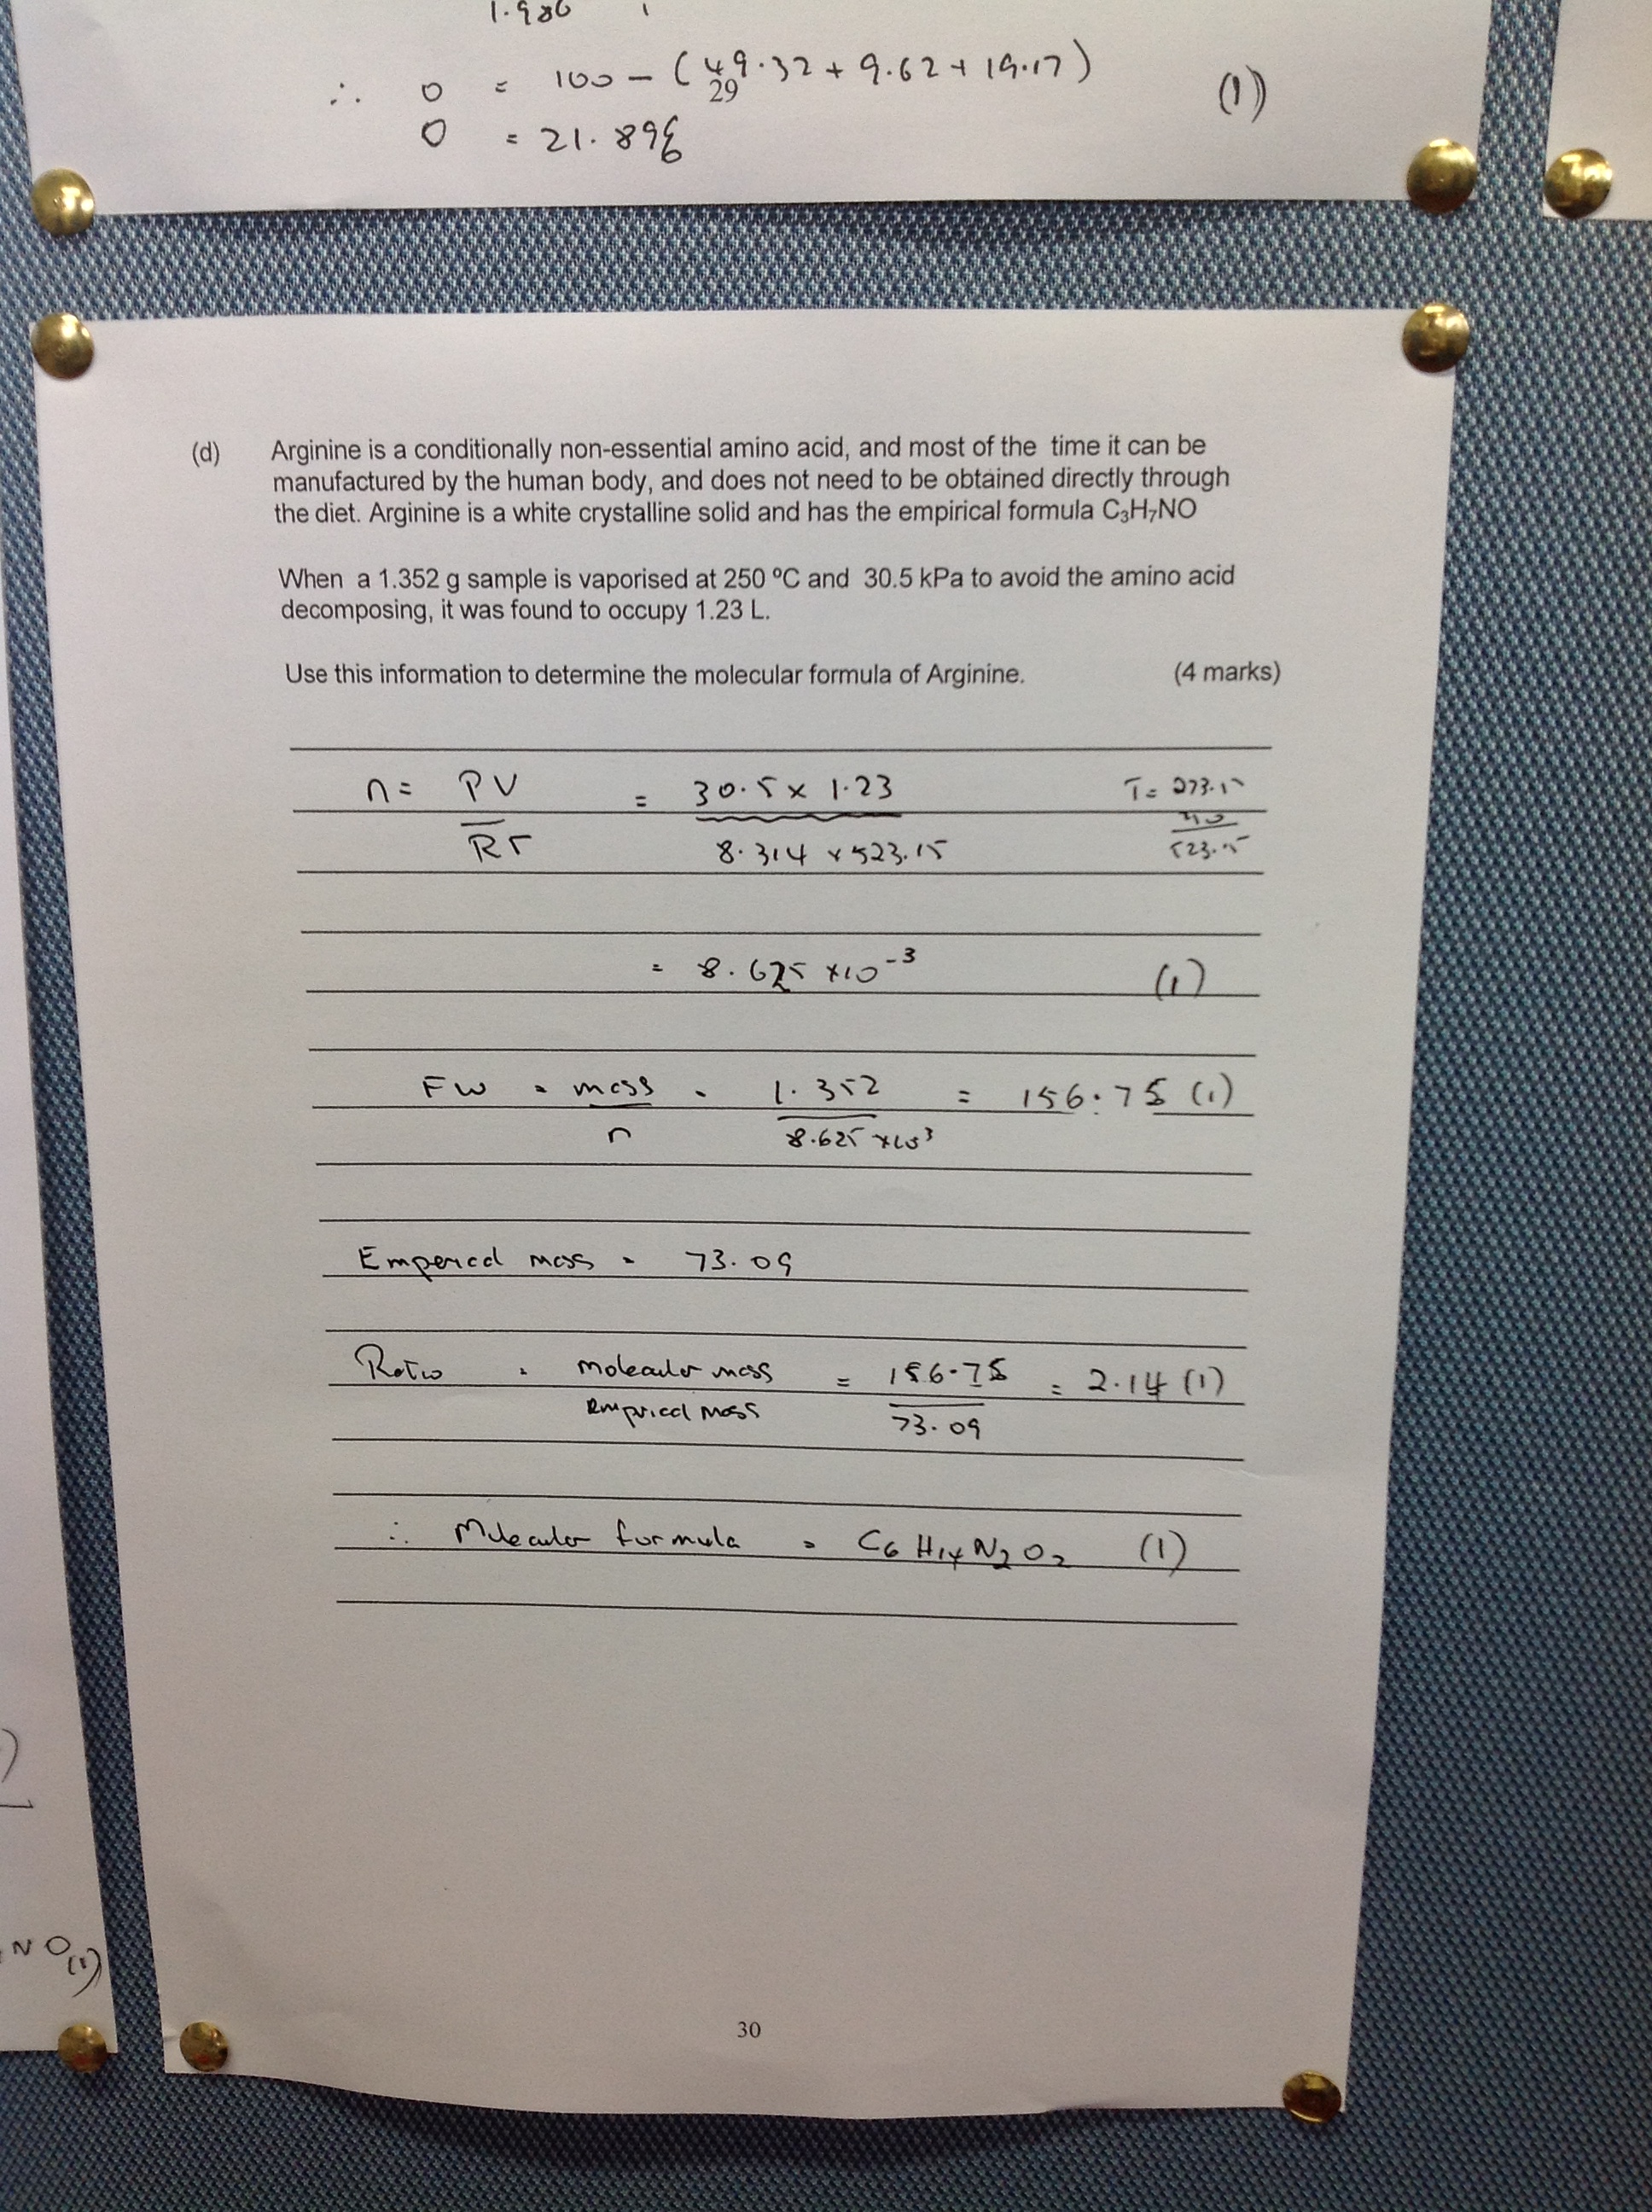 1.986
∴ O = 100 - (49.32 + 9.62 + 19.17) (1)
29
O = 21.896
(d) Arginine is a conditionally non-essential amino acid, and most of the time it can be
manufactured by the human body, and does not need to be obtained directly through
the diet. Arginine is a white crystalline solid and has the empirical formula C₃H₇NO
When a 1.352 g sample is vaporised at 250 ºC and 30.5 kPa to avoid the amino acid
decomposing, it was found to occupy 1.23 L.
Use this information to determine the molecular formula of Arginine. (4 marks)
n = PV = 30.5 x 1.23 T = 273.15
RT 8.314 x 523.15 523.15
= 8.625 x10⁻³ (1)
FW = mass = 1.352 = 156.75 (1)
n 8.625 x10³
Emperical mass = 73.09
Ratio = molecular mass = 156.75 = 2.14 (1)
empirical mass 73.09
∴ Molecular formula = C₆H₁₄N₂O₂ (1)
NO (1)
30